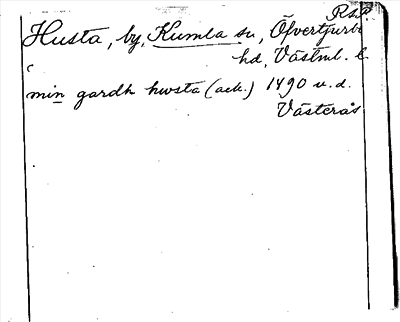 RAP.
Husta, by, Kumla sn, Öfvertjurbo
hd, Västml. l.
c
min gardh hwsta (ack.) 1490 u.d.
Västerås